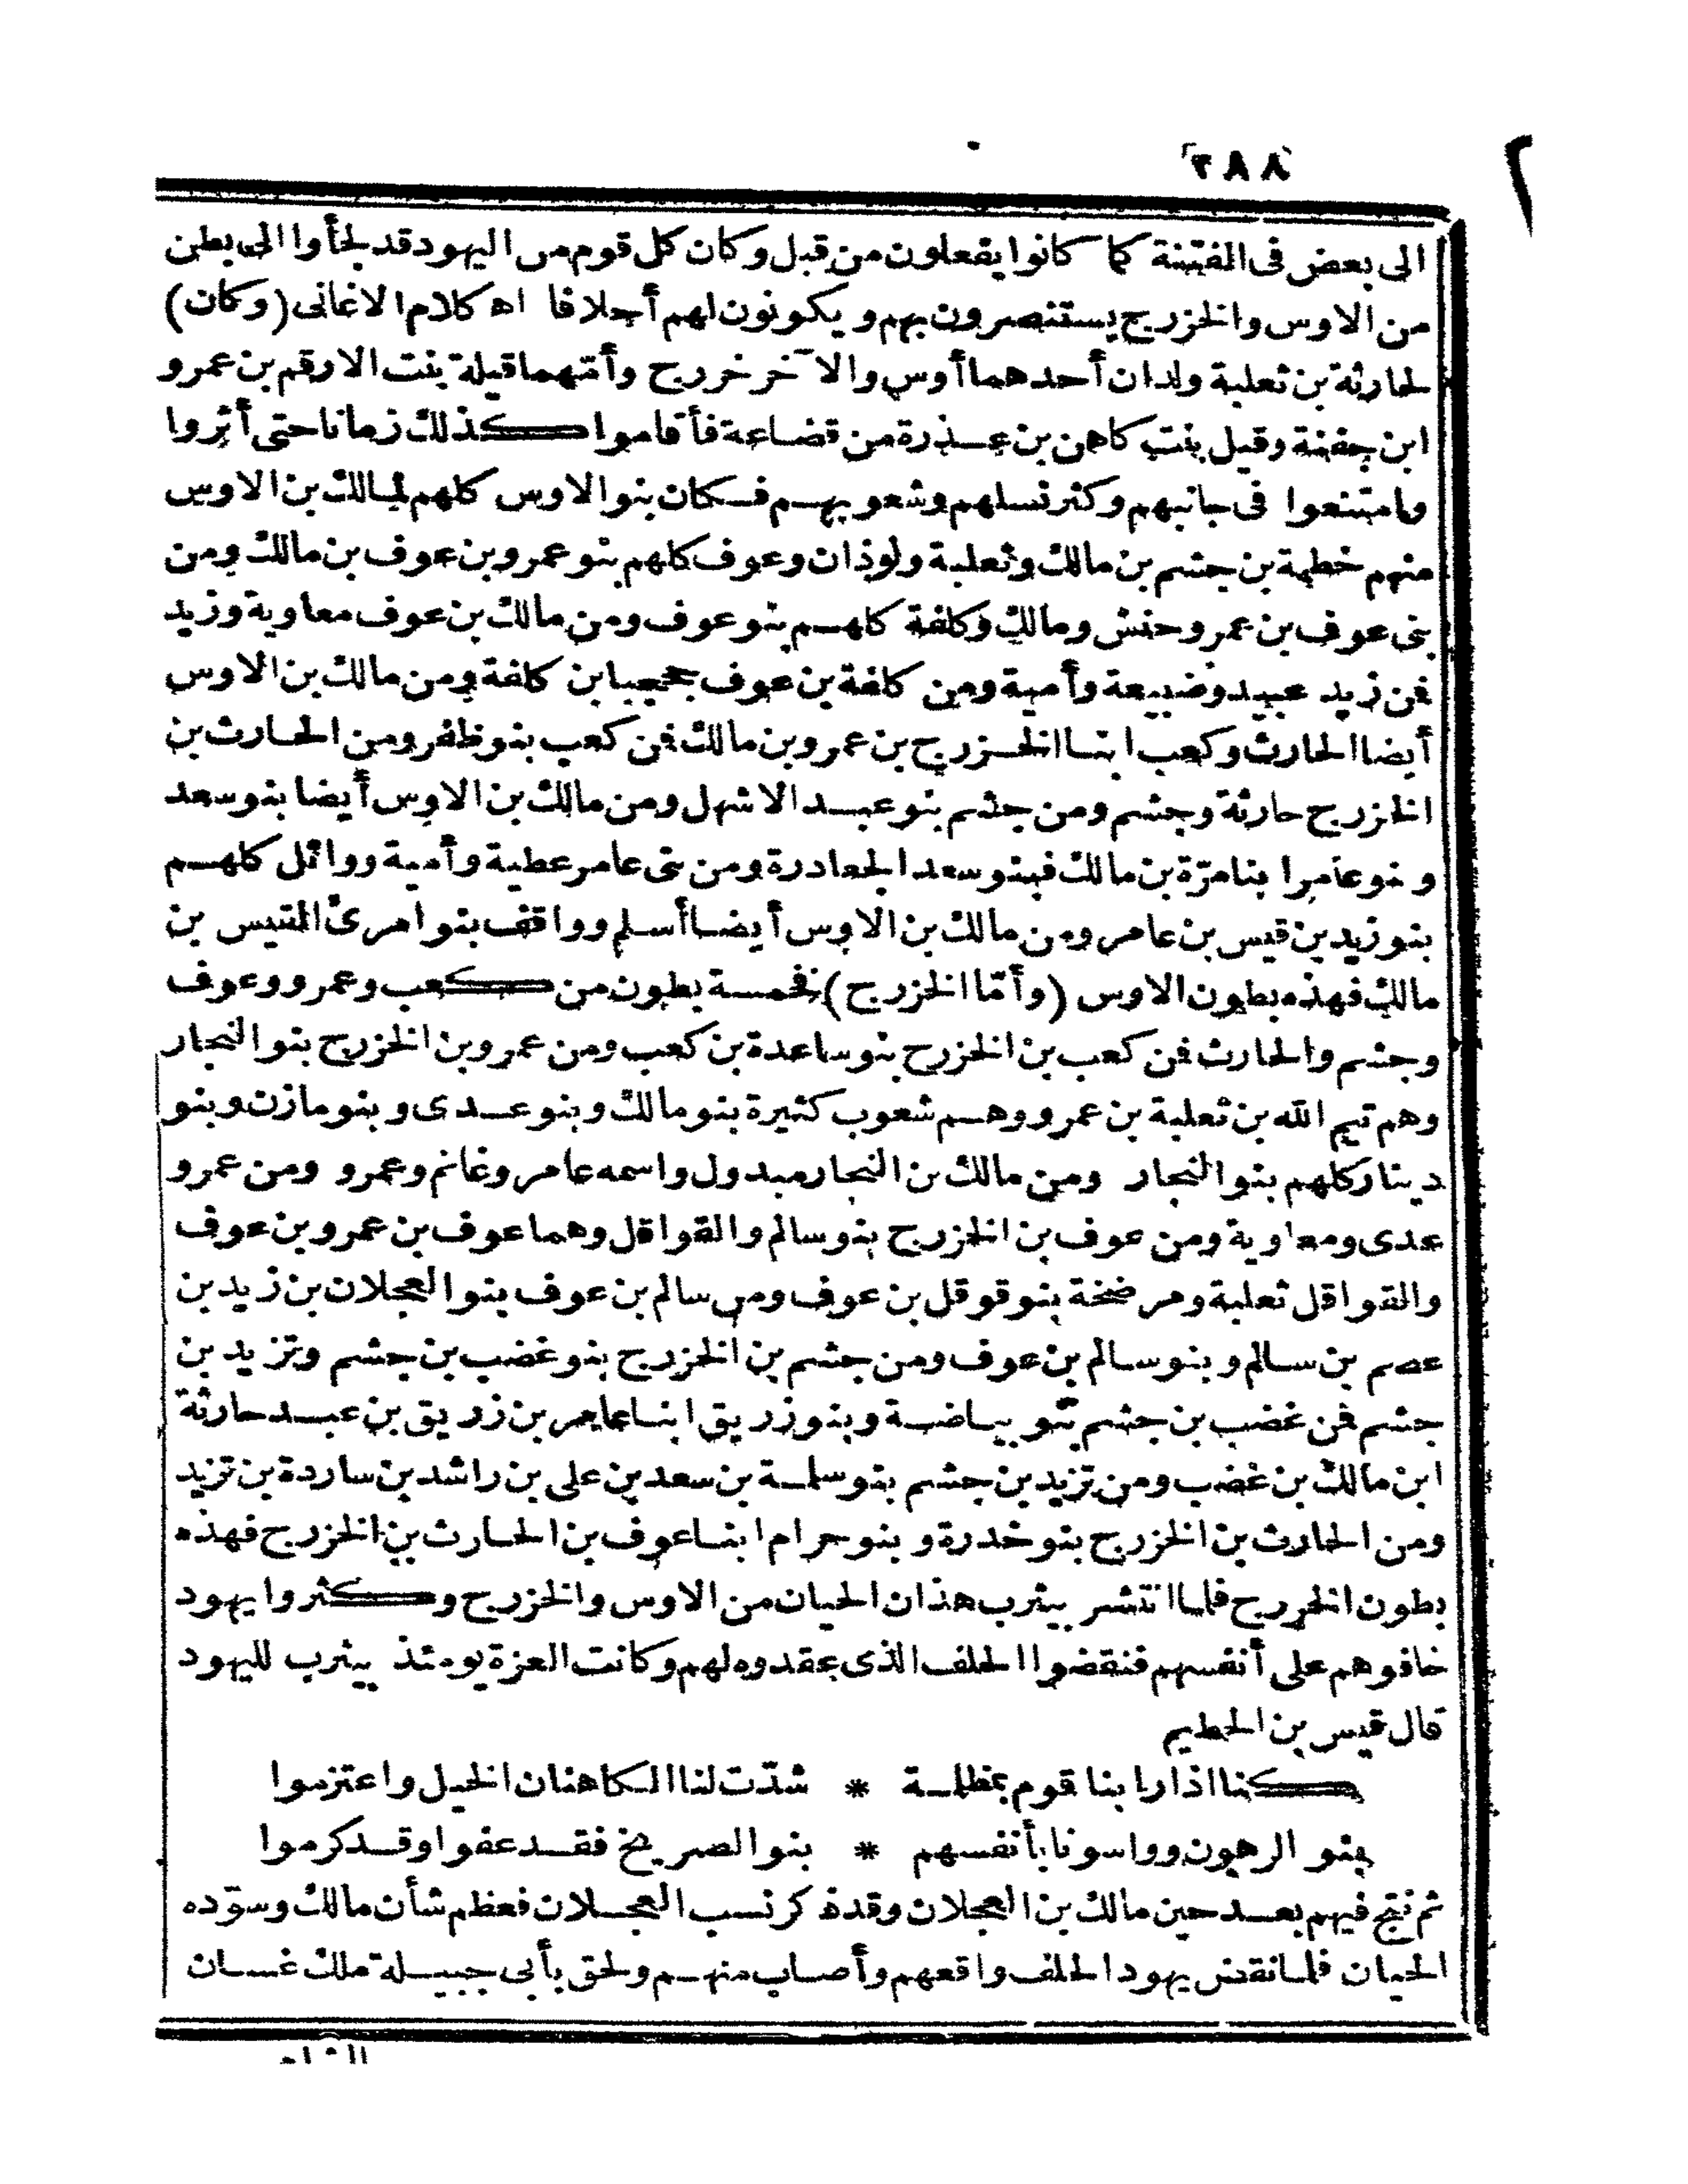 ٢٨٨
الى بعض فى الفتنة كما كانوا يفعلون من قبل وكان كل قوم من اليهود قد لجأوا الى بطن
من الاوس والخزرج يستنصرون بهم ويكونون لهم أحلافا اه كلام الاغانى (وكان)
لحارثة بن ثعلبة ولدان أحدهما أوس والآخر خزرج وأمّهما قيلة بنت الارقم بن عمرو
ابن جفنة وقيل بنت كاهن بن عذرة من قضاعة فأقاموا كذلك زمانا حتى أثروا
وامتنعوا فى جانبهم وكثر نسلهم وشعوبهم فكان بنو الاوس كلهم لمالك بن الاوس
منهم خطمة بن جشم بن مالك وثعلبة ولوذان وعوف كلهم بنو عمرو بن عوف بن مالك ومن
بنى عوف بن عمرو حنش ومالك وكلفة كلهم بنو عوف ومن مالك بن عوف معاوية وزيد
فمن زيد عبيد وضبيعة وأمية ومن كلفة بن عوف جحجبا بن كلفة ومن مالك بن الاوس
أيضا الحارث وكعب ابنا الخزرج بن عمرو بن مالك فمن كعب بنو ظفر ومن الحارث بن
الخزرج حارثة وجشم ومن جشم بنو عبد الاشهل ومن مالك بن الاوس أيضا بنو سعد
وبنو عامر ابنا مرّة بن مالك فبنو سعد الجعادرة ومن بنى عامر عطية وأمية ووائل كلهم
بنو زيد بن قيس بن عامر ومن مالك بن الاوس أيضا أسلم وواقف بنو امرئ القيس بن
مالك فهذه بطون الاوس (وأمّا الخزرج) فخمسة بطون من كعب وعمرو وعوف
وجشم والحارث فمن كعب بن الخزرج بنو ساعدة بن كعب ومن عمرو بن الخزرج بنو النجار
وهم تيم الله بن ثعلبة بن عمرو وهم شعوب كثيرة بنو مالك وبنو عدى وبنو مازن وبنو
دينار كلهم بنو النجار ومن مالك بن النجار مبدول واسمه عامر وغانم وعمرو ومن عمرو
عدى ومعاوية ومن عوف بن الخزرج بنو سالم والقواقل وهما عوف بن عمرو بن عوف
والقواقل ثعلبة ومرضخة بنو قوقل بن عوف ومن سالم بن عوف بنو العجلان بن زيد بن
عصم بن سالم وبنو سالم بن عوف ومن جشم بن الخزرج بنو غضب بن جشم وتزيد بن
جشم فمن غضب بن جشم بنو بياضة وبنو زريق ابنا عامر بن زريق بن عبد حارثة
ابن مالك بن غضب ومن تزيد بن جشم بنو سلمة بن سعد بن على بن راشد بن ساردة بن تزيد
ومن الحارث بن الخزرج بنو خدرة وبنو حرام ابنا عوف بن الحارث بن الخزرج فهذه
بطون الخزرج فلما انتشر بيثرب هذان الحيان من الاوس والخزرج وكثروا يهود
خافوهم على أنفسهم فنقضوا الحلف الذى عقدوه لهم وكانت العزة يومئذ بيثرب لليهود
قال قيس بن الحطيم
كنا اذا رابنا قوم بمظلمة * شدّت لنا الكاهنان الخيل واعتزموا
بنو الرهون وواسونا بأنفسهم * بنو الصريخ فقد عفوا وقد كرموا
ثم نتج فيهم بعد حين مالك بن العجلان وقد ذكر نسب العجلان فعظم شأن مالك وسوّده
الحيان فلما نقض يهود الحلف واقعهم وأصاب منهم ولحق بأبى جبيلة ملك غسان